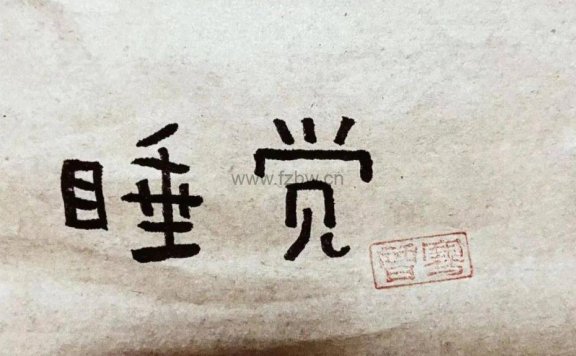 睡觉
www.fzbw.cn